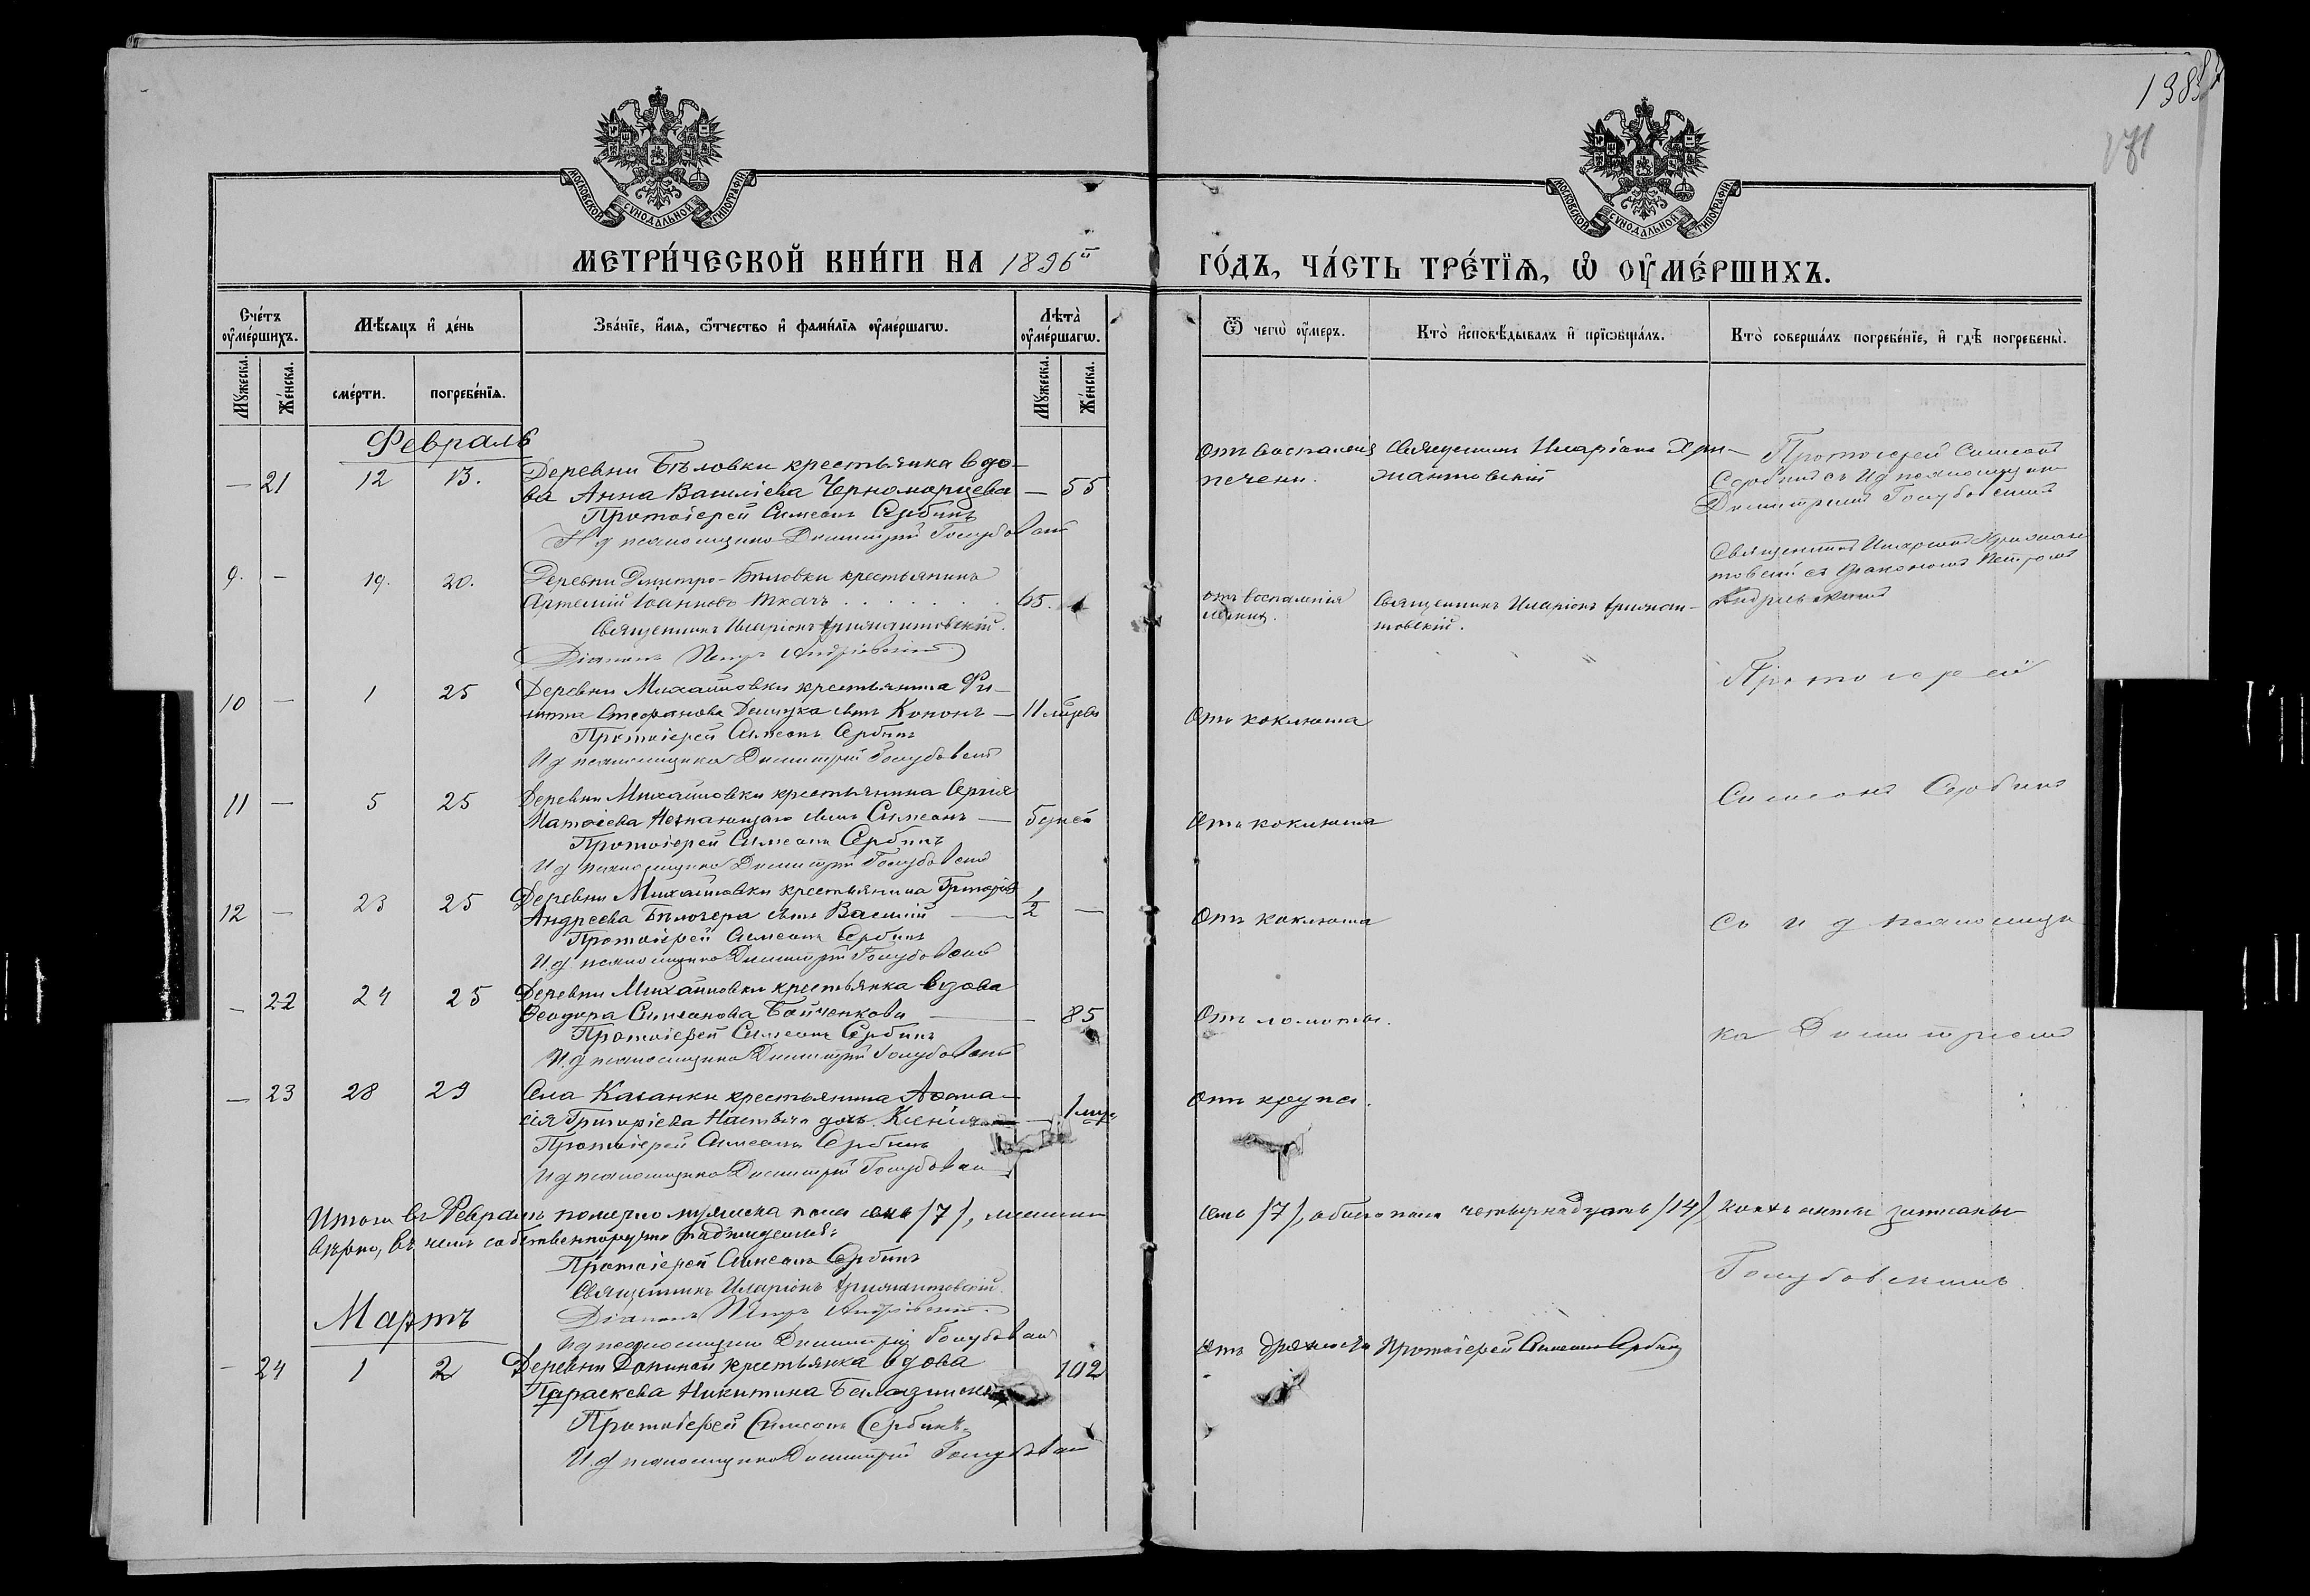 1383
171
МОСКОВСКОЙ СѴНОДАЛЬНОЙ ТИПОГРАФІИ
МОСКОВСКОЙ СѴНОДАЛЬНОЙ ТИПОГРАФІИ
МЕТРИ́ЧЕСКОЙ КНИ́ГИ НА 1896й
ГО́ДЪ, ЧА́СТЬ ТРЕ́ТЇѦ, Ѡ҆ ОУ҆МЕ́РШИХЪ.
Сче́тъ оу҆ме́ршихъ.
Мꙋ́жеска.
Же́нска.
Мѣ́сяцъ и҆ де́нь
сме́рти.
погребе́нїѧ.
Зва́нїе, и҆́мѧ, ѻ҆́тчество и҆ фами́лїѧ оу҆ме́ршагѡ.
Лѣ́та оу҆ме́ршагѡ.
Мꙋ́жеска.
Же́нска.
Ѿ чегѡ̀ оу҆́меръ.
Кто̀ и҆сповѣ́дывалъ и҆ прїѡбща́лъ.
Кто̀ соверша́лъ погребе́нїе, и҆ гдѣ̀ погребены̀.
Февраль
— 21 12 13. Деревни Бѣловки крестьянка вдо-
ва Анна Василіева Черноморцева — 55
Протоіерей Симеонъ Сербинъ
И д псаломщика Димитрій Голубовскій
Отъ воспаленія
печени.
Священникъ Иларіонъ Хри-
жантовскій
Протоіерей Симеонъ
Сербинъ съ И д псаломщика
Димитріемъ Голубовскимъ
9. — 19. 20. Деревни Дмитро-Бѣловки крестьянинъ
Артемій Іоанновъ Ткачъ . . . . . . . 65.
Священникъ Иларіонъ Хрисантовскій.
Діаконъ Петръ Андріевскій
отъ воспаленія
легкихъ.
Священникъ Иларіонъ Хрисан-
товскій.
Священникъ Иларіонъ Хрисан
товскій съ Діакономъ Петромъ
Андріевскимъ
10 — 1 25 Деревни Михайловки крестьянина Фи-
липпа Стефанова сынъ Кононъ — 11
Протоіерей Симеонъ Сербинъ
И д псаломщика Димитрій Голубовскій
Отъ коклюша
Протоіерей
11 — 5 25 Деревни Михайловки крестьянина Сергія
Матѳіева сынъ Симеонъ — 5 дней
Протоіерей Симеонъ Сербинъ
И д псаломщика Димитрій Голубовскій
Отъ коклюша
Симеонъ Сербинъ
12 — 23 25 Деревни Михайловки крестьянина Григорія
Андреева Бѣлозера сынъ Василій — 1/2 —
Протоіерей Симеонъ Сербинъ
И. д. псаломщика Димитрій Голубовскій
Отъ коклюша
Съ и д псаломщи
— 22 24 25 Деревни Михайловки крестьянка вдова
Ѳеодора Симеонова Бойченкова — 85
Протоіерей Симеонъ Сербинъ
И. д псаломщика Димитрій Голубовскій
Отъ ломоты.
ка Димитріемъ
— 23 28 29 Села Казанки крестьянина Аѳана-
сія Григоріева дочь Ксенія — 1
Протоіерей Симеонъ Сербинъ
И д псаломщика Димитрій Голубовскій
Отъ крупа.
Итого въ Февралѣ померло мужеска пола семь /7/, женска
семь /7/, обоего пола четырнадцать /14/, коихъ акты записаны
вѣрно, въ чемъ собственноручно
Протоіерей Симеонъ Сербинъ
Священникъ Иларіонъ Хрисантовскій.
Діаконъ Петръ Андріевскій
И д псаломщика Димитрій Голубовскій
Голубовскимъ
Мартъ
— 24 1 2 Деревни крестьянка вдова 102
Параскева Никитина
Протоіерей Симеонъ Сербинъ
И. д псаломщика Димитрій Голубовскій
Отъ дряхлости Протоіерей Симеонъ Сербинъ